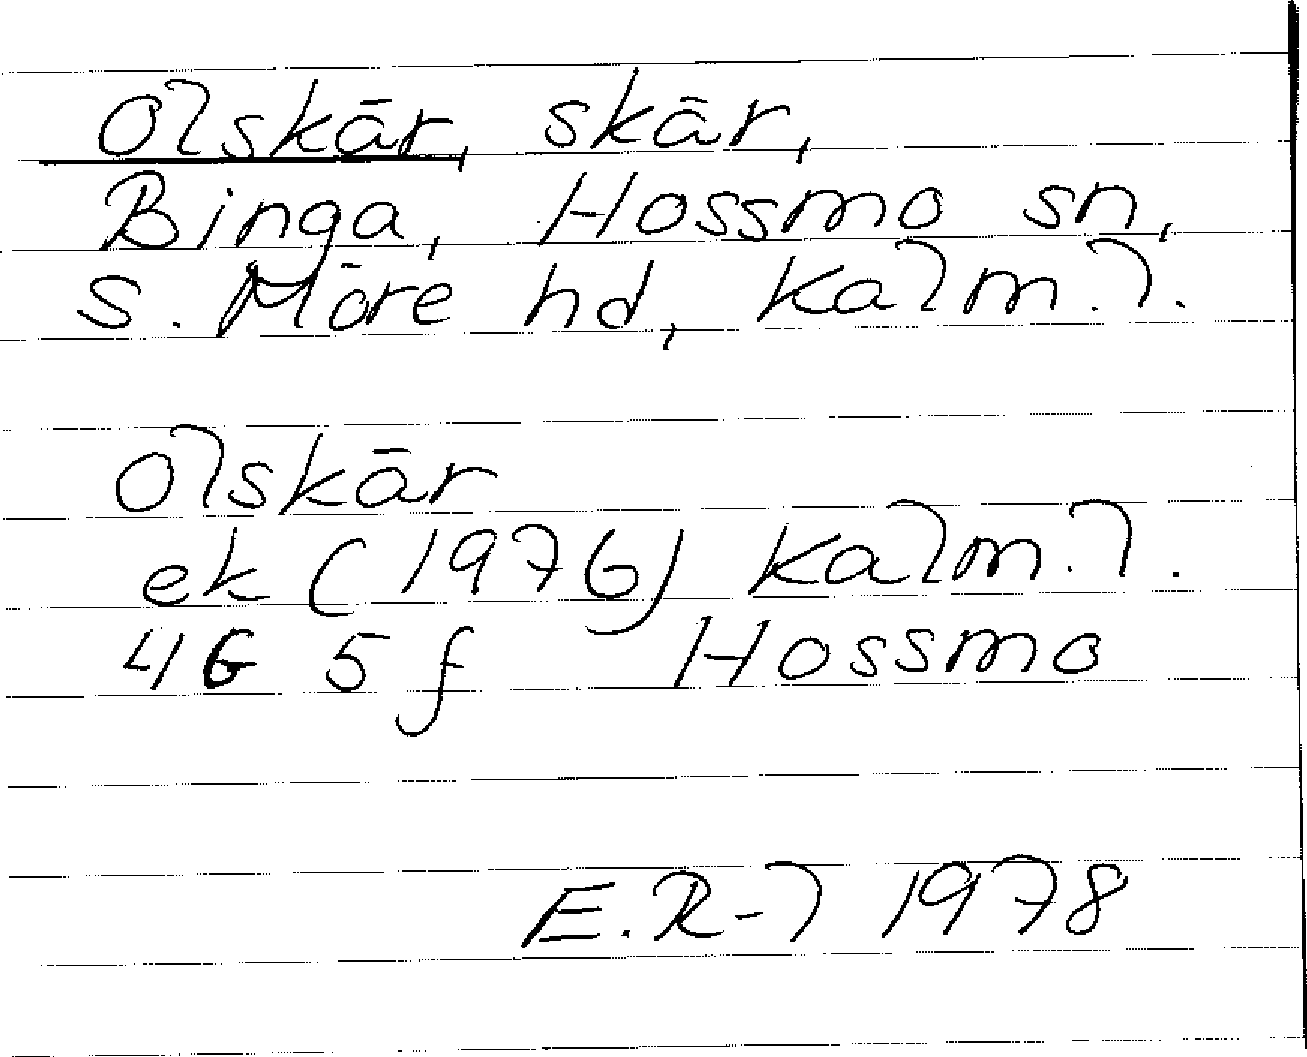 Olskär, skär,
Binga, Hossmo sn,
S. Möre hd, Kalm. l.
Olskär
ek (1976) Kalm. l.
4G 5f Hossmo
E. R-l 1978